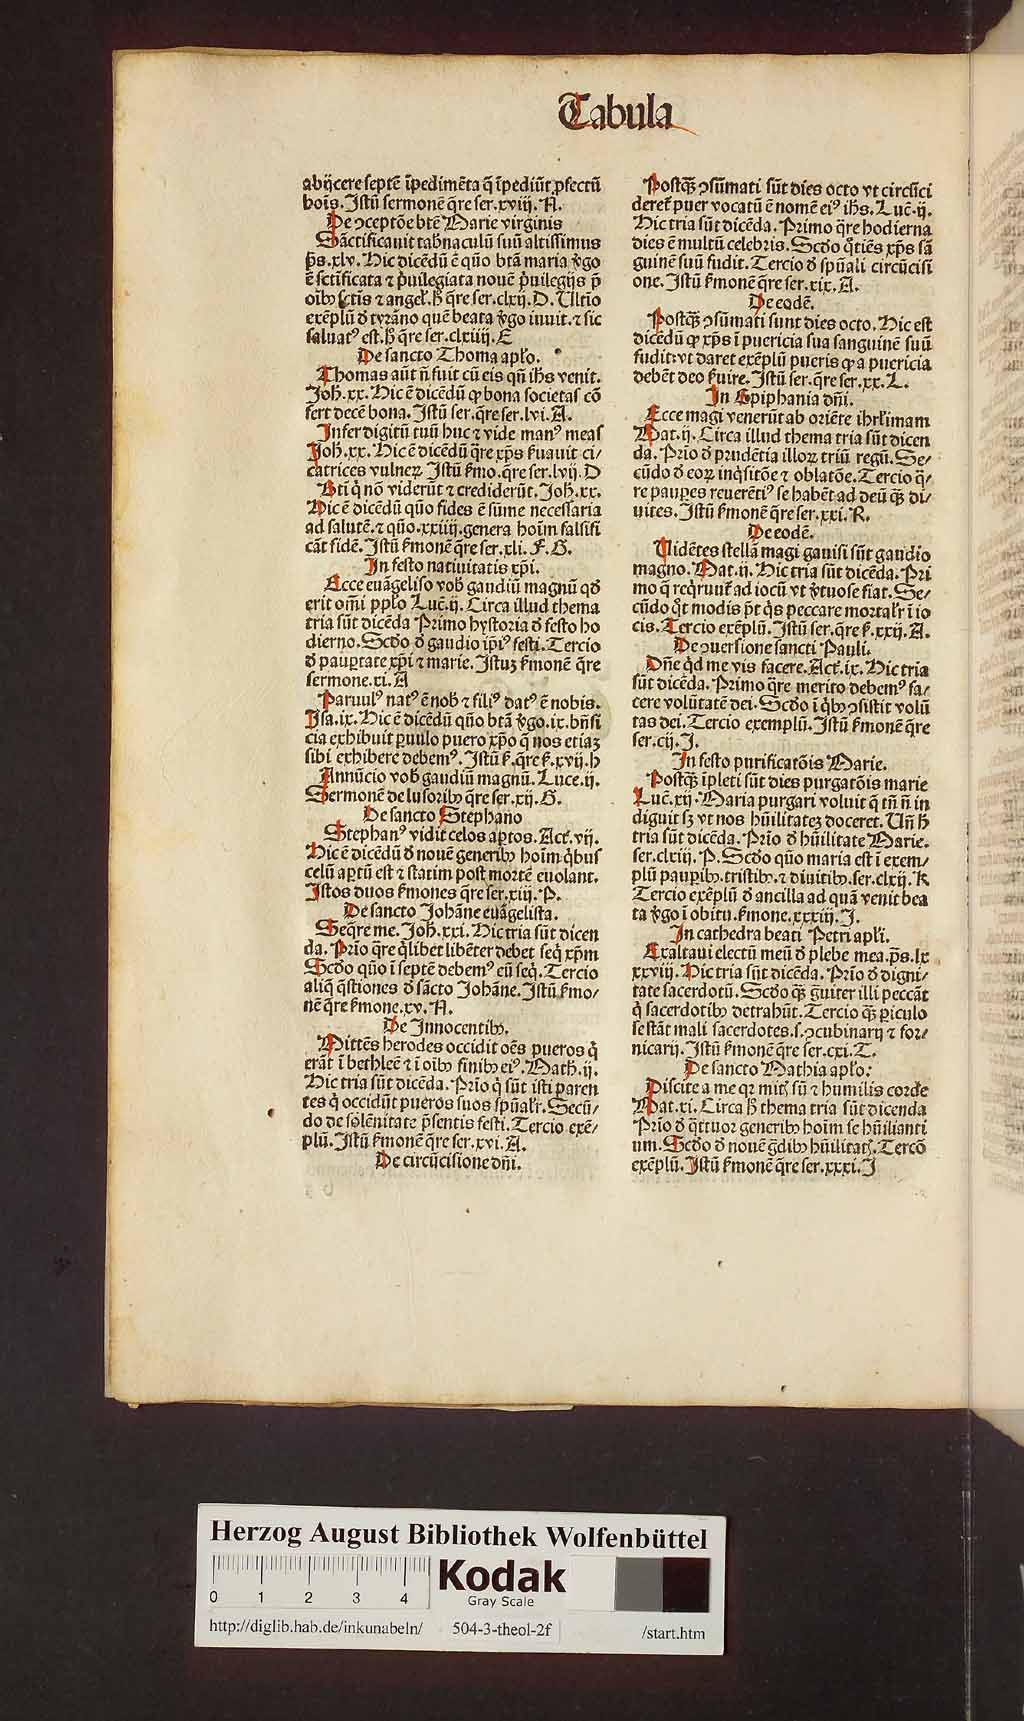 Tabula
abijcere septē īpedimēta q̄ īpediūt ꝓfectū
hoīs. Istū sermonē q̄re ser. xviij. A.
De ↄceptōe btē Marie virginis
Sāctificauit tab̄naculū suū altissimus
p̄s. xlv. Hic dicēdū ē quō btā maria ꝟgo
ē sctīficata ⁊ p̄uilegiata nouē p̄uilegijs p̄
oīb⁹ sctīs ⁊ angeł. H̄ q̄re ser. clxij. D. Ultīo
exēplū ꝺ tyrāno quē beata ꝟgo iuuit. ⁊ sic
saluat⁹ est. H̄ q̄re ser. clxiiij. E
De sancto Thoma apło.
Thomas aūt n̄ fuit cū eis qn̄ ihs venit.
Joh̄. xx. Hic ē dicēdū ꝙ bona societas cō
fert decē bona. Istū ser. q̄re ser. lvi. A.
Infer digitū tuū huc ⁊ vide man⁹ meas
Joh̄. xx. Hic ē dicēdū q̄re xp̄s ẜuauit ci/
catrices vulneꝝ Istū ẜmo. q̄re ser. lvij. D
Bti q̇ nō viderūt ⁊ crediderūt. Joh̄. xx.
Hic ē dicēdū quō fides ē sūme necessaria
ad salutē. ⁊ quō. xxiiij. genera hoīm falsifi
cāt fidē. Istū ẜmonē q̄re ser. xli. F. G.
In festo natiuitatis xp̄i.
Ecce euāgeliso vob̄ gaudiū magnū qꝺ
erit om̄i pplo Luē. ij. Circa illud thema
tria sūt dicēda Primo hystoria ꝺ festo ho
dierno. Scꝺo ꝺ gaudio ip̄i⁹ festi. Tercio
ꝺ paupꝑtate xp̄i ⁊ marie. Istuꝫ ẜmonē q̄re
sermone. xi. A
Paruul⁹ nat⁹ ē nob̄ ⁊ fili⁹ dat⁹ ē nobis.
Isa. ix. Hic ē dicēdū quō btā ꝟgo. ix. bn̄fi
cia exhibuit ꝑuulo puero xp̄o q̄ nos etiaꝫ
sibi exhibere debem⁹. Istū ẜ. q̄re ẜ. xvij. h
Annūcio vob̄ gaudiū magnū. Luce. ij.
Sermonē de lusorib⁹ q̄re ser. xij. G.
De sancto Stephano
Stephan⁹ vidit celos aꝑtos. Act̄. vij.
Hic ē dicēdū ꝺ nouē generib⁹ hoīm q̇bus
celū aꝑtū est ⁊ statim post mortē euolant.
Istos duos ẜmones q̄re ser. xiij. P.
De sancto Johāne euāgelista.
Seq̄re me. Joh̄. xxi. Hic tria sūt dicen
da. Prīo q̄re q̇libet libēter debet seq̇ xp̄m
Scꝺo quō ī septē debem⁹ eū seq̇. Tercio
aliq̄ q̄stiones ꝺ sācto Johāne. Istū ẜmo/
nē q̄re ẜmone. xv. A.
De Innocentib⁹.
Mittēs herodes occidit oēs pueros q̇
erāt ī bethleē ⁊ ī oīb⁹ finib⁹ ei⁹. Math̄. ij.
Hic tria sūt dicēda. Prīo q̇ sūt isti paren
tes q̇ occidūt pueros suos spūałr. Secū/
do de solēnitate p̄sentis festi. Tercio exē/
plū. Istū ẜmonē q̄re ser. xvi. A.
De circūcisione dn̄i.
Postq̄ꝫ ↄsūmati sūt dies octo vt circūci
deret̄ puer vocatū ē nomē ei⁹ ihs. Luē. ij.
Hic tria sūt dicēda. Primo q̄re hodierna
dies ē multū celebris. Scꝺo q̊tiēs xp̄s sā
guinē suū fudit. Tercio ꝺ spūali circūcisi
one. Istū ẜmonē q̄re ser. xix. A.
De eodē.
Postq̄ꝫ ↄsūmati sunt dies octo. Hic est
dicēdū ꝙ xp̄s ī puericia sua sanguinē suū
fudit: vt daret exēplū pueris ꝙ a puericia
debēt deo ẜuire. Istū ser. q̄re ser. xx. L.
In Epiphania dn̄i.
Ecce magi venerūt ab oriēte ihrłimam
Mat. ij. Circa illud thema tria sūt dicen
da. Prīo ꝺ prudētia illoꝝ triū regū. Se/
cūdo ꝺ eoꝝ inq̇sitōe ⁊ oblatōe. Tercio q̄/
re pauꝑes reuerēti⁹ se habēt ad deū q̄ꝫ di/
uites. Istū ẜmonē q̄re ser. xxi. R.
De eodē.
Uidētes stellā magi gauisi sūt gaudio
magno. Mat. ij. Hic tria sūt dicēda. Pri
mo q̄ req̇runt̄ ad iocū vt ꝟtuose fiat. Se/
cūdo q̊t modis p̄t q̇s peccare mortałr ī io
cis. Tercio exēplū. Istū ser. q̄re ẜ. xxij. A.
De ↄuersione sancti Pauli.
Dn̄e q̇d me vis facere. Act̄. ix. Hic tria
sūt dicēda. Primo q̄re merito debem⁹ fa/
cere volūtatē dei. Scꝺo ī q̇b⁹ ↄsistit volū
tas dei. Tercio exemplū. Istū ẜmonē q̄re
ser. cij. I.
In festo purificatōis Marie.
Postq̄ꝫ īpleti sūt dies purgatōis marie
Luē. xij. Maria purgari voluit q̄ tn̄ n̄ in
diguit sꝫ vt nos hūilitateꝫ doceret. Un̄ h̄
tria sūt dicēda. Prīo ꝺ hūilitate Marie.
ser. clxiij. P. Scꝺo quō maria est ī exem/
plū pauꝑib⁹. tristib⁹. ⁊ diuitib⁹. ser. clxij. K
Tercio exēplū ꝺ ancilla ad quā venit bea
ta ꝟgo ī obitu. ẜmone. xxxiij. I.
In cathedra beati Petri apłi.
Exaltaui electū meū ꝺ plebe mea. p̄s. lx
xxviij. Hic tria sūt dicēda. Prīo ꝺ digni/
tate sacerdotū. Scꝺo q̄ꝫ g̊uiter illi peccāt
q̇ sacerdotib⁹ detrahūt. Tercio q̄ꝫ ꝑiculo
se stāt mali sacerdotes. s. ↄcubinarij ⁊ for/
nicarij. Istū ẜmonē q̄re ser. cxi. T.
De sancto Mathia apło:
Discite a me qꝛ mit̄ sū ⁊ humilis corde
Mat. xi. Circa h̄ thema tria sūt dicenda
Prīo ꝺ q̊ttuor generib⁹ hoīm se hūilianti
um. Scꝺo ꝺ nouē g̊dib⁹ hūilitat̄. Tercō
exēplū. Istū ẜmonē q̄re ser. xxxi. I
Herzog August Bibliothek Wolfenbüttel
0 1 2 3 4
Kodak
Gray Scale
http://diglib.hab.de/inkunabeln/ 504-3-theol-2f /start.htm